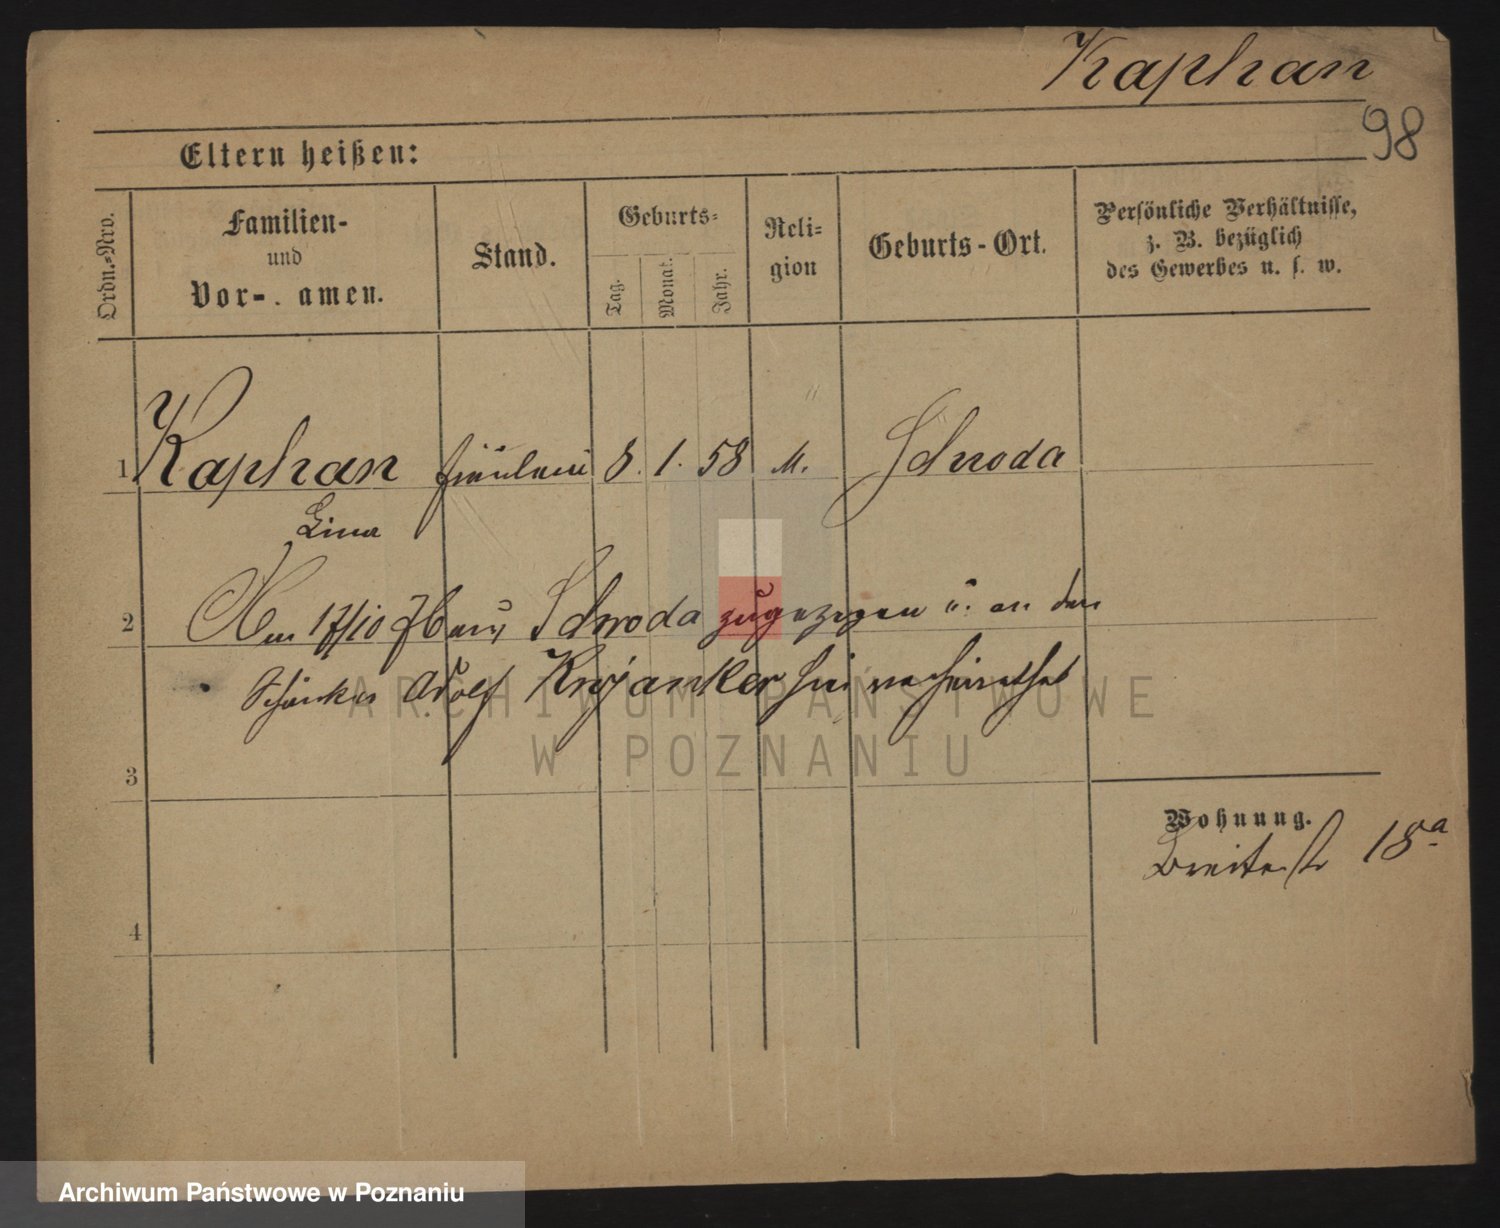 Kaphan
98
Eltern heißen:
Ordn.-Nro.
Familien-
und
Vor- . amen.
Stand.
Geburts-
Tag.
Monat.
Jahr.
Reli-
gion
Geburts-Ort.
Persönliche Verhältnisse,
z. B. bezüglich
des Gewerbes u. s. w.
1 Kaphan Fräulein 8. 1. 58 M. Schroda
Lina
2 Am 17/10 76 aus Schroda zugezogen u. an den
Schänker Adolf Krojanker hier verheirathet
3
Wohnung.
Breitestr 18a
4
ARCHIWUM PAŃSTWOWE
W POZNANIU
Archiwum Państwowe w Poznaniu